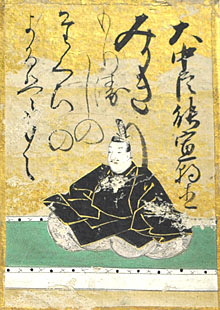 大中臣能宣朝臣
みかき
もり衛しの
たくひの
よるはもえ